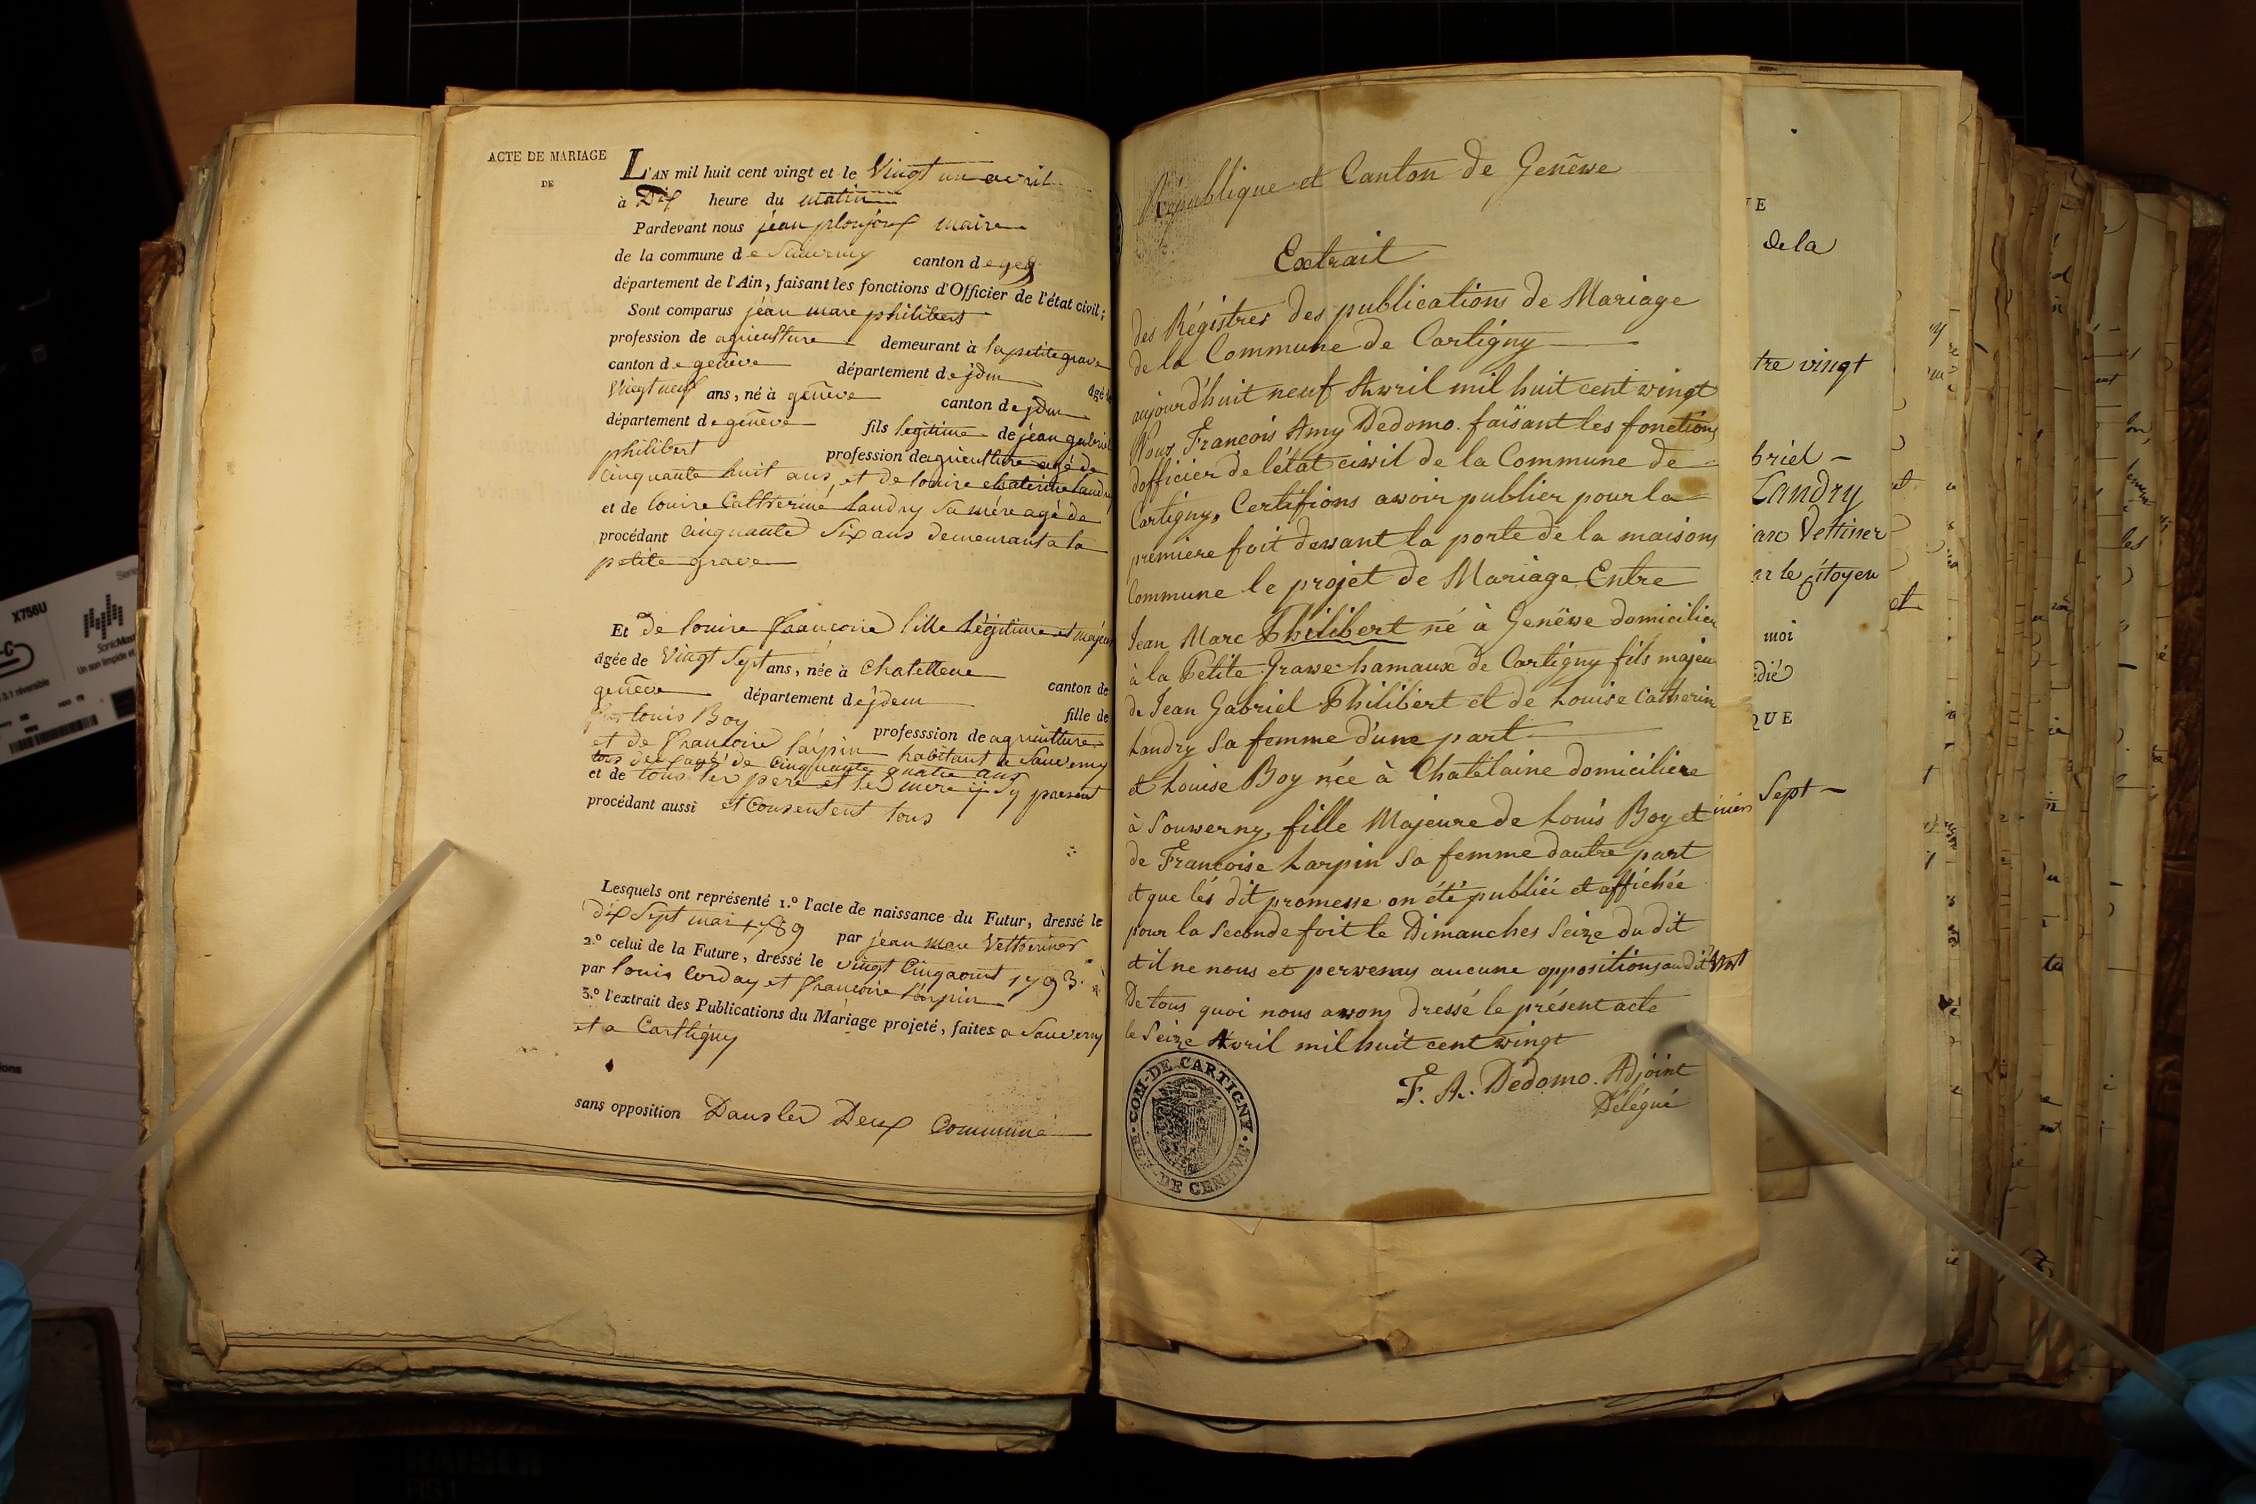 ACTE DE MARIAGE
DE
L'AN mil huit cent vingt et le Vingt un avril
à Dix heure du matin
Pardevant nous jean ploujoux maire
de la commune de Sauverny canton de gex
département de l'Ain, faisant les fonctions d'Officier de l'état civil;
Sont comparus jéan marc philibert
profession de agriculture demeurant à la petite grave
canton de genève département de jdm agé de
Vingt neuf ans, né à genève canton de jdm
département de genève fils légitime de jean gabriel
philibert profession de agriculture agé de
cinquante huit ans, et de louise chaterine landry
et de louise Catherine Landry Sa mére agé de
procédant cinquante Six ans demeurant a la
petite grave
Et de louise françoise fille légitime et majeur
âgée de Vingt Sept ans, née à Chatellene
canton de
genève département de jdem
fille de
louis Boy professsion de agriculture
et de françoise larpin habitant a Sauverny
tous deux agé de Cinquante quatre ans
et de tous les pere et les mere ij Sy present
procédant aussi et Consentent tous
Lesquels ont représenté 1.º l'acte de naissance du Futur, dressé le
dix Sept mai 1789 par jean marc Vettiner
2.º celui de la Future, dressé le vingt Cinq aoust 1793
par louis Corday et françoise larpin
3.º l'extrait des Publications du Mariage projeté, faites a Sauverny
et a Cartligny
sans opposition Dans les Deux Commune
République et Canton de Genêwe
Extrait
des Régistres des publications de Mariage
de la Commune de Cartigny
aujourd'huit neuf Awril mil huit cent wingt
Nous Francois Amy Dedomo. faisant les fonctions
dofficier de létat ciwil de la Commune de
Cartigny, Certifions awoir publier pour la
première foit dewant la porte de la maisons
Commune le projet de Mariage Entre
Jean Marc Philibert né à Genêwe domicilier
à la Petite Grawe hamaux de Cartigny fils majeu
de Jean Gabriel Philibert et de Louise Catherine
Landry Sa femme d'une part
et Louise Boy née à Chatélaine domiciliere
à Souwerny, fille Majeure de Louis Boy et
de Francoise Larpin Sa femme dautre part
et que lés dit promesse on été publiée et affichée
pour la Seconde foit le Dimanches Seize du dit
et il ne nous et perwenus aucune oppositions au dit
De tous quoi nous awons dressé le présent acte
le Seize Awril mil huit cent wingt
F. A. Dedomo. Adjoint
Délégué
COM. DE CARTIGNY
DE GENEVE
VE
de la
tre vingt
briel
Landry
arc Vettiner
ar le Citoyen
moi
édié
QUE
Sept